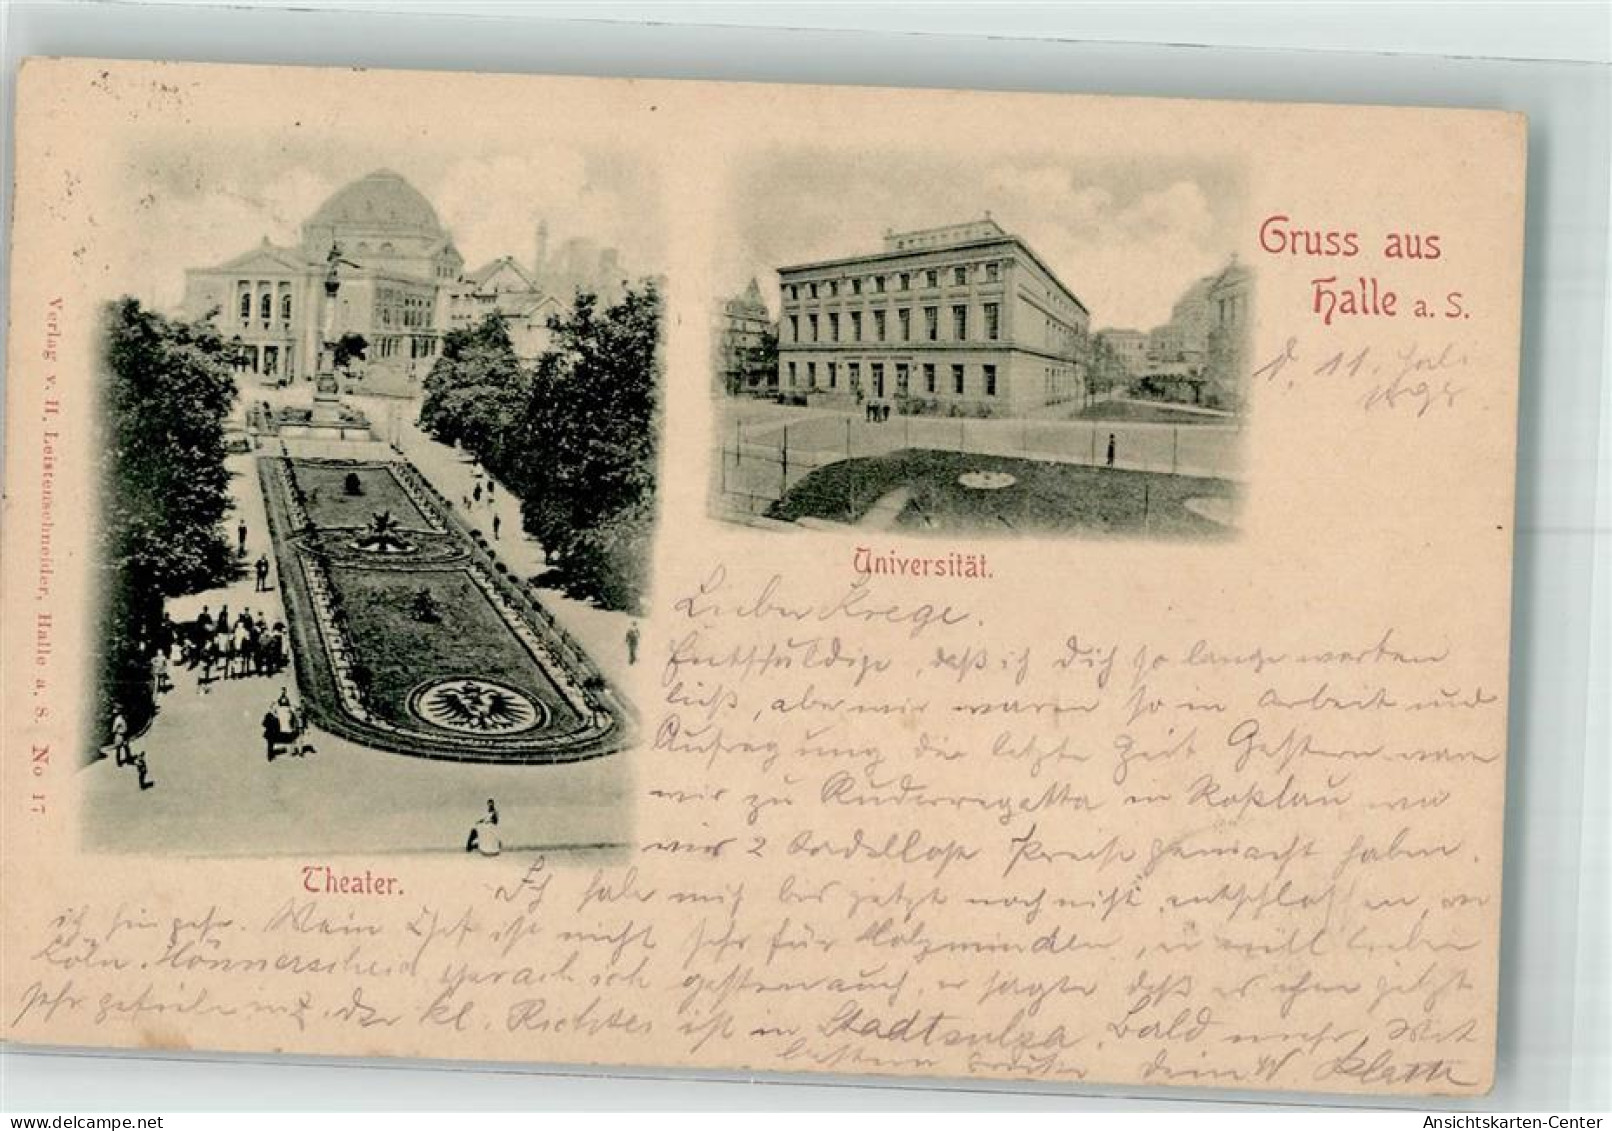 Gruss aus
Halle a. S.
d. 11. Juli
Verlag v. H. Leistenschneider, Halle a. S. No 17
Universität.
Theater.
Lieber Krege.
Entschuldige, daß ich dich so lange warten
ließ, aber wir waren so in Arbeit und
Aufregung die letzte Zeit. Gestern waren
wir zu Ruderregatta in Roßlau, wo
wir 2 tadellose Preise gemacht haben.
Ich habe mich bis jetzt noch nicht entschlossen, wo
ich hingehe. Mein Chef ist nicht sehr für Holzminden, er will lieber
Köln. Hönnerscheid sprach ich gestern auch, er sagte daß es ihm jetzt
sehr gefiele und der kl. Richter ist in Stadtsulza. Bald mehr. Mit
besten Grüßen dein W.
Ansichtskarten-Center